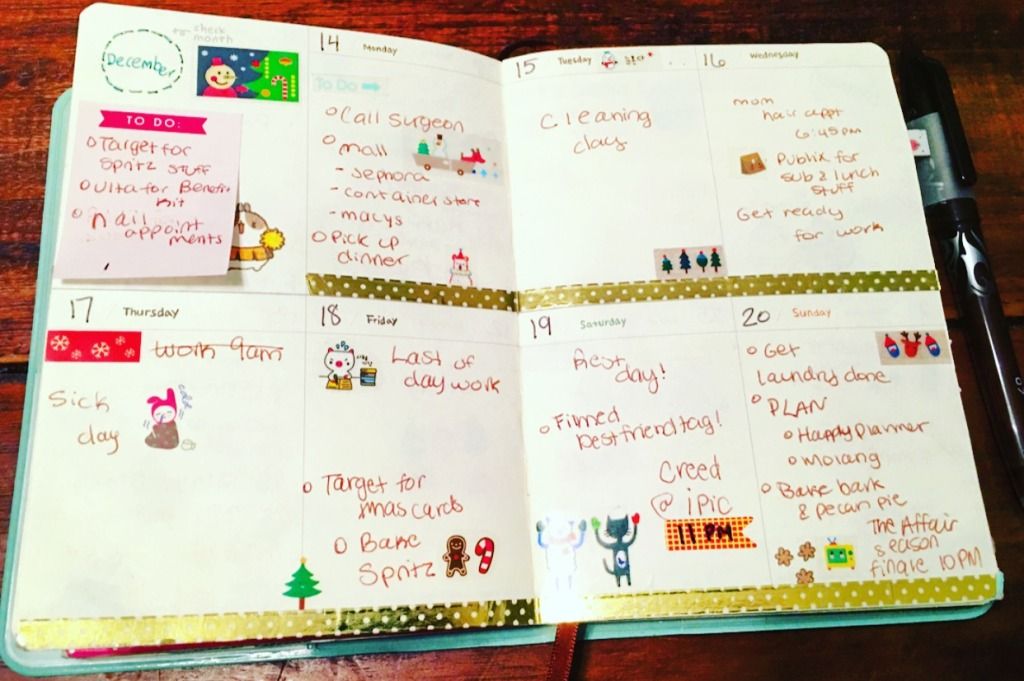 December
check
month
TO DO:
Target for
Spritz stuff
Ulta for Benefit
kit
nail
appoint
ments
14 Monday
TO DO
Call surgeon
mall
- sephora
- container store
- macys
Pick up
dinner
15 Tuesday
Cleaning
day
16 Wednesday
mom
hair appt
6:45pm
Publix for
sub & lunch
stuff
Get ready
for work
17 Thursday
work 9am
Sick
day
18 Friday
Last of
day work
Target for
xmas cards
Bake
Spritz
19 Saturday
Rest
day!
Filmed
bestfriend tag!
Creed
@ iPic
11 PM
20 Sunday
Get
laundry done
PLAN
Happy Planner
Molang
Bake bark
& pecan pie
The Affair
season
finale 10PM